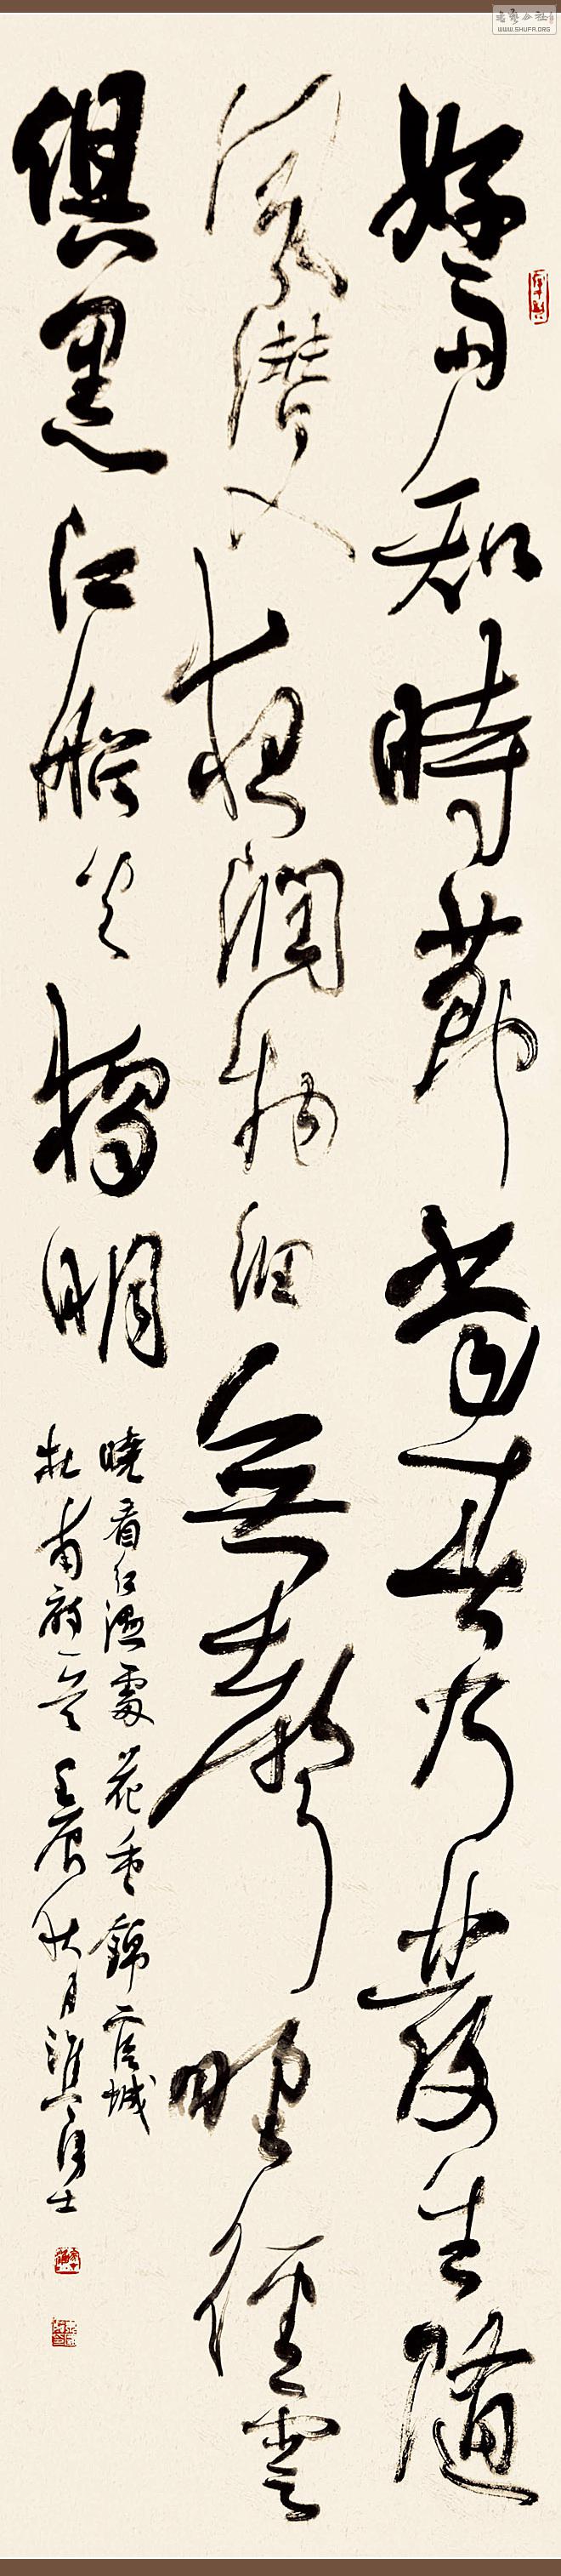 好雨知時節當春乃發生隨
風潛入夜潤物細無聲野徑雲
俱黑江船火獨明
曉看紅濕處花重錦官城
杜甫詩一首壬辰秋月
WWW.SHUFA.ORG